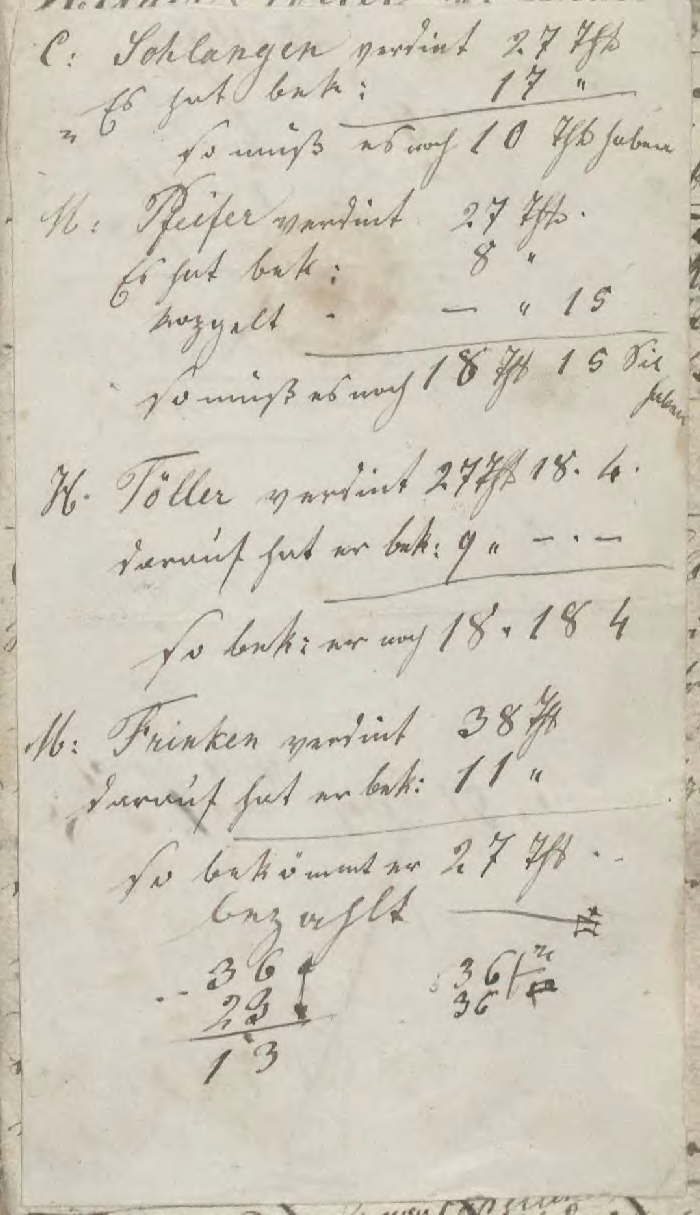 C: Schlangen verdint 27 Thl
" Es hat bek: 17 "
so muß es noch 10 Thl haben
M: Pfeifer verdint 27 Thl.
Es hat bek: 8 "
- — " 15
so muß es noch 18 Thl 15 Sil
haben
H. Töller verdint 27 Thl 18. 4.
darauf hat er bek: 9 " — . —
so bek: er noch 18 . 18 4
M: Frinken verdint 38 Thl
darauf hat er bek: 11 "
so bekömmt er 27 Thl . -
bezahlt —
36
23
13
36
36